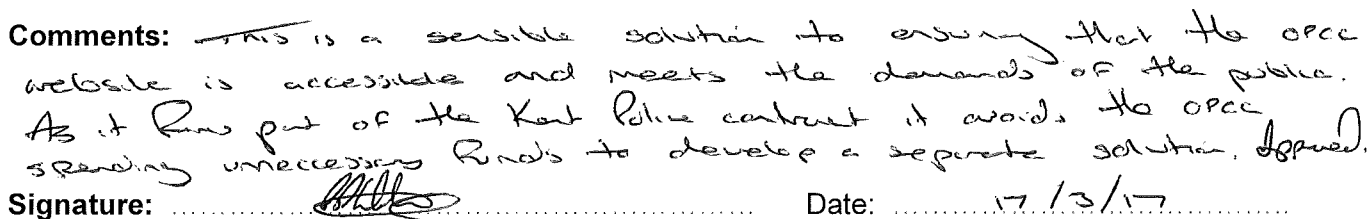 Comments: This is a sensible solution to ensuring that the OPCC
website is accessible and meets the demands of the public.
As it forms part of the Kent Police contract it avoids the OPCC
spending unneccessary funds to develop a separate solution. Approved.
Signature: Date: 17/3/17